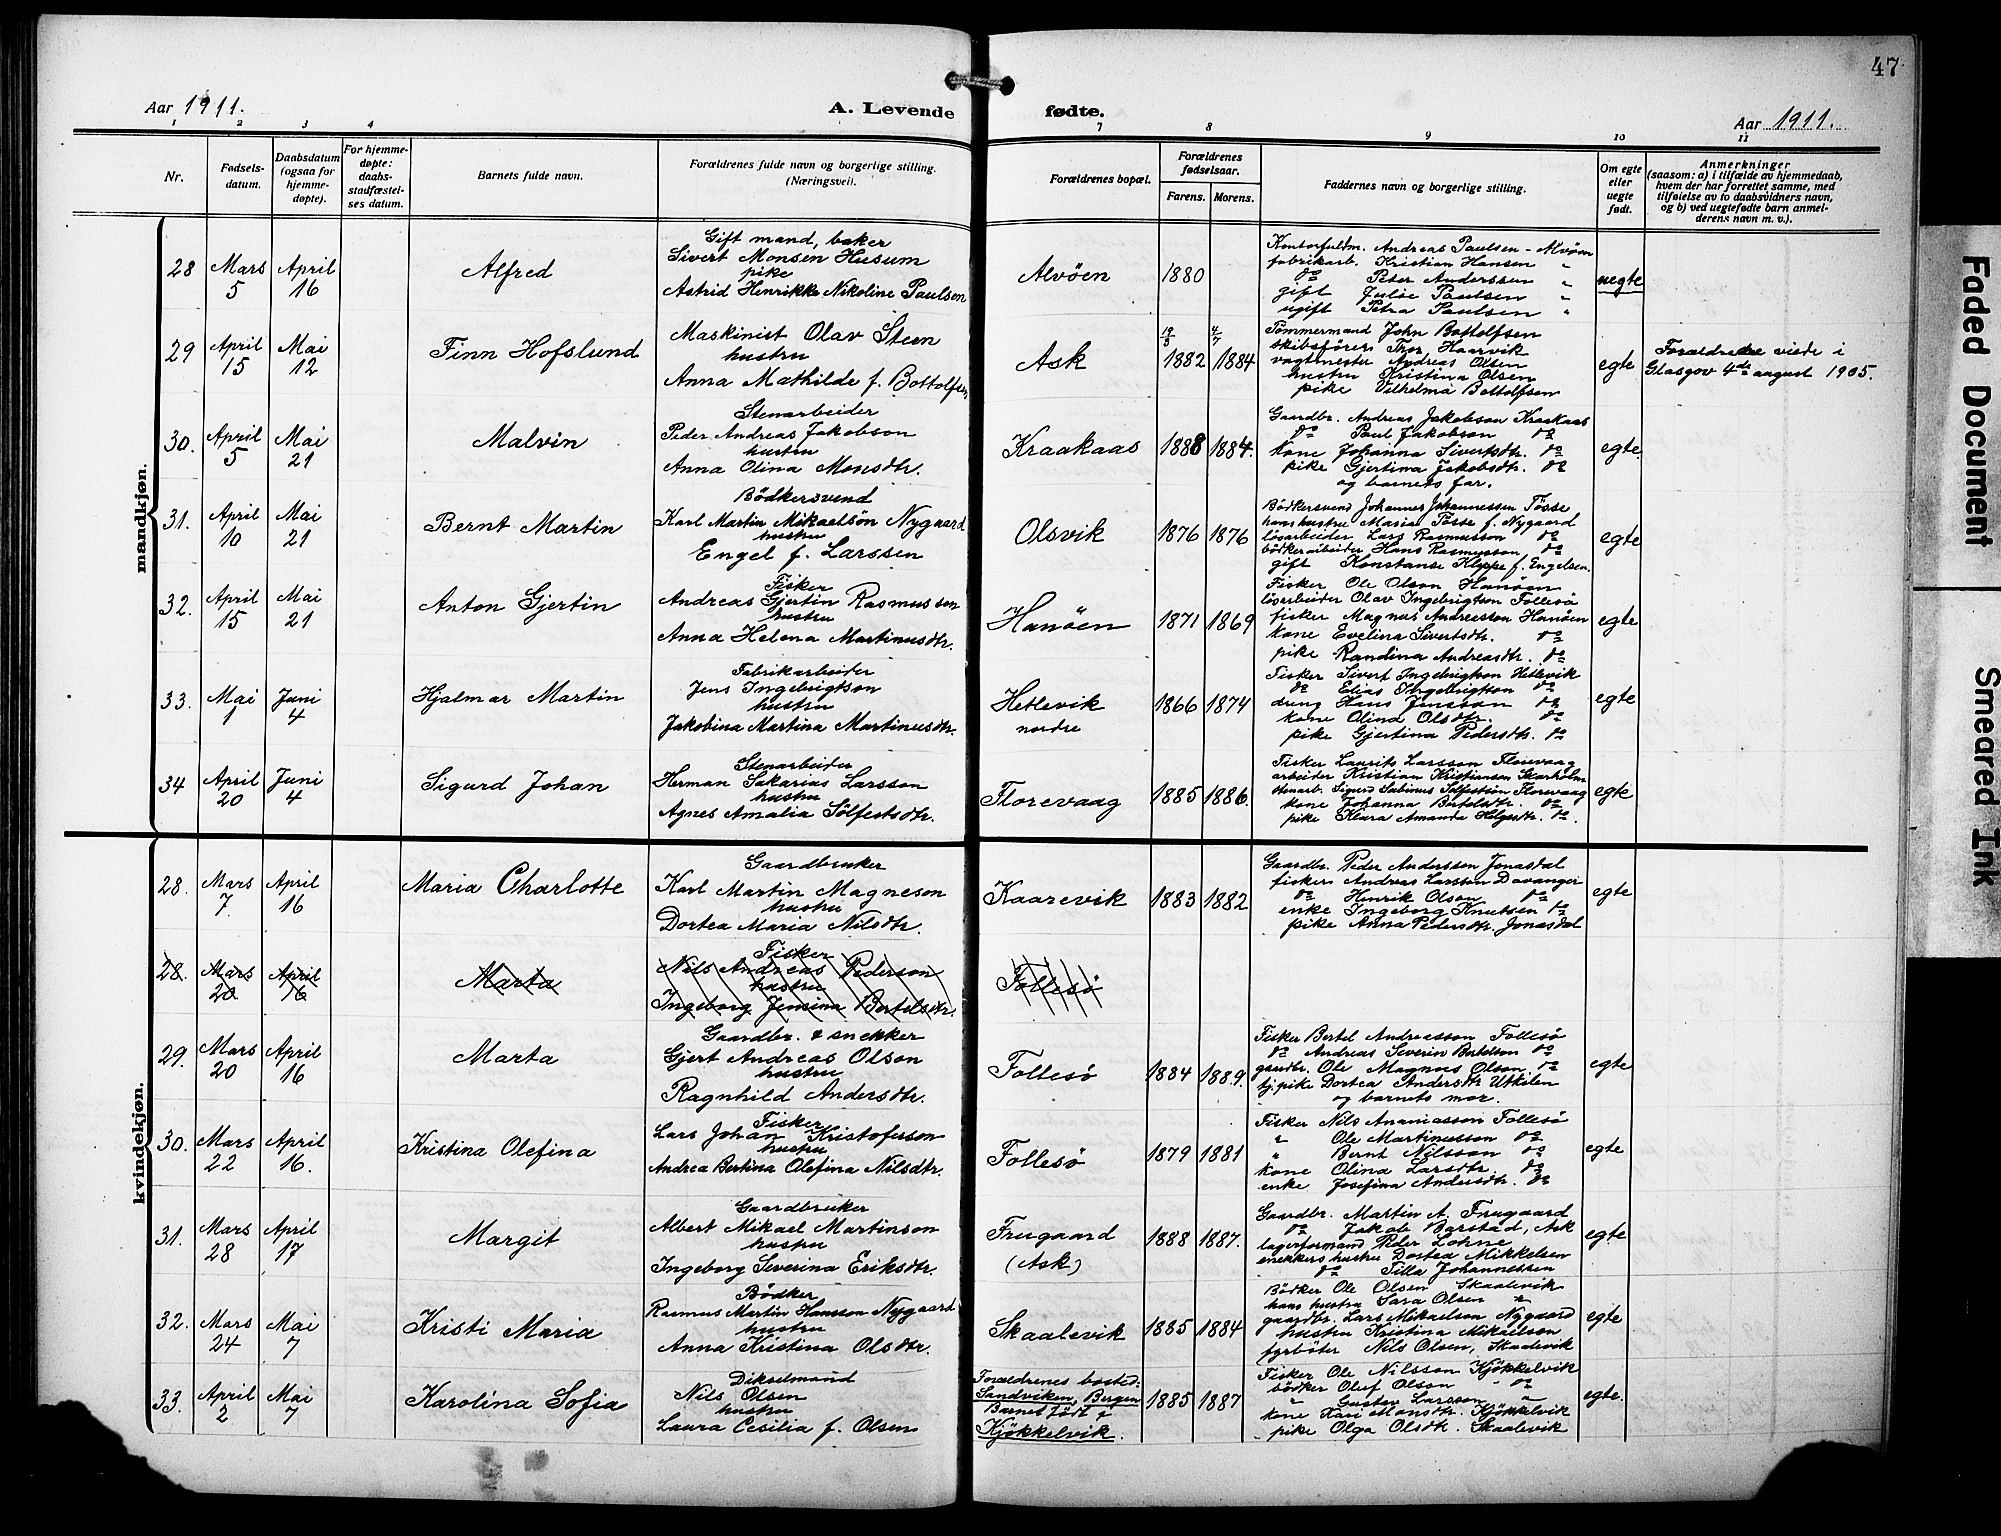 47
Aar 1911. A. Levende fødte. Aar 1911.
1 2 3 4 7 8 9 10 11
Nr.
Fødsels-
datum.
Daabsdatum
(ogsaa for
hjemme-
døpte).
For hjemme-
døpte:
daabs-
stadfæstel-
ses datum.
Barnets fulde navn.
Forældrenes fulde navn og borgerlige stilling.
(Næringsvei).
Forældrenes bopæl.
Forældrenes
fødselsaar.
Farens. Morens.
Faddernes navn og borgerlige stilling.
Om egte
eller
uegte
født.
Anmerkninger
(saasom: a) i tilfælde av hjemmedaab,
hvem der har forrettet samme, med
tilføielse av to daabsvidners navn,
og b) ved uegtefødte barn anmel-
derens navn m. v.).
mandkjøn.
28 Mars 5 April 16 Alfred
Gift mand, baker
Sivert Monsen Husum
pike
Astrid Henrikke Nikoline Paulsen
Alvöen 1880
Kontorfuldm. Andreas Paulsen - Alvöen
fabrikarb. Kristian Hansen "
do Peter Anderssen "
gift Julie Paulsen "
ugift Petra Paulsen "
uegte
29 April 15 Mai 12 Finn Hofslund
Maskinist Olav Steen
hustru
Anna Mathilde f. Bottolfsen
Ask 19/3 1882 4/7 1884
Tömmermand John Bottolfsen
skibsförer Thor Haarvik
vagtmester Andreas Olsen
hustru Kristina Olsen
pike Vilhelma Bottolfsen
egte
Forældrene viede i
Glasgov 4de august 1905.
30. April 5 Mai 21 Malvin
Stenarbeider
Peder Andreas Jakobson
hustru
Anna Olina Monsdtr.
Kraakaas 1888 1884.
Gaardbr. Andreas Jakobson Kraakaas
do Paul Jakobson do
kone Johanna Sivertsdtr. do
pike Gjertina Jakobsdtr. do
og barnets far.
egte
31. April 10 Mai 21 Bernt Martin
Bödkersvend
Karl Martin Mikaelsön Nygaard
hustru
Engel f. Larssen
Olsvik 1876 1876
Bödkersvend Johannes Johannessen Tösse
hans hustru Maria Tösse f. Nygaard
lösarbeider Lars Rasmusson do
bödkerarbeider Hans Rasmusson do
gift Konstanse Kleppe f. Engelsen.
egte
32. April 15 Mai 21 Anton Gjertin
Fisker
Andreas Gjertin Rasmusson
hustru
Anna Helena Martinusdtr.
Hanöen 1871 1869
Fisker Ole Olson Hanöen
lösarbeider Olav Ingebrigtson Follesö
fisker Magnus Andreasson Hanöen
kone Evelina Sivertsdtr. do
pike Randina Andreasdtr. do
egte
33. Mai 1 Juni 4 Hjalmar Martin
Fabrikarbeider
Jens Ingebrigtson
hustru
Jakobina Martina Martinusdtr.
Hetlevik
nordre
1866 1874
Fisker Sivert Ingebrigtson Hetlevik
do Elias Ingebrigtson do
dreng Hans Jensson do
kone Olina Olsdtr. do
pike Gjertina Pedersdtr. do
egte
34 April 20 Juni 4 Sigurd Johan
Stenarbeider
Herman Sakarias Larsson
hustru
Agnes Amalia Sölfestsdtr.
Florevaag 1885 1886.
Fisker Laurits Larsson Florevaag
arbeider Kristian Kristianson Skarholm
stenarb. Sigurd Sabinus Sölfestson Florevaag
kone Johanna Bertelsdtr. do
pike Klara Amanda Helgesdtr. do.
egte
kvindekjøn.
28. Mars 7. April 16 Maria Charlotte
Gaardbruker
Karl Martin Magneson
hustru
Dortea Maria Nilsdtr.
Kaarevik 1883 1882
Gaardbr. Peder Andersson Jonasdal
fiskers Andreas Larsson Davanger
do Henrik Olson do
enke Ingeborg Knutsen do
pike Anna Pedersdtr. Jonasdal
egte
28. Mars 20 April 16 Marta
Fisker
Nils Andreas Pederson
hustru
Ingeborg Jensina Bertelsdtr.
Follesö
29. Mars 20 April 16 Marta
Gaardbr. & snekker
Gjert Andreas Olson
hustru
Ragnhild Andersdtr.
Follesö 1884 1889.
Fisker Bertel Andreasson Follesö
do Andreas Severin Bertelson do
gaardbr. Ole Magnus Olson do
tj. pike Dortea Andersdtr Utkilen
og barnets mor.
egte
30. Mars 22 April 16. Kristina Olefina
Fisker
Lars Johan Kristoferson
hustru
Andrea Bertina Olefina Nilsdtr.
Follesö 1879 1881
Fisker Nils Ananiasson Follesö
" Ole Martinusson do
" Bernt Nilsson do
kone Olina Larsdtr. do
enke Josefina Andersdtr. do
egte
31. Mars 28 April 17 Margit
Gaardbruker
Albert Mikael Martinson
hustru
Ingeborg Severina Eriksdtr.
Frugaard
(Ask)
1888 1887.
Gaardbr. Martin A. Frugaard
do Jakob Barstad, Ask
lagerformand Peder Lohne
snekkers hustru Dortea Mikkelsen
do Tilla Johannessen
egte
32. Mars 24 Mai 7 Kristi Maria
Bödker
Rasmus Martin Hansson Nygaard
hustru
Anna Kristina Olsdtr.
Skaalevik 1885 1884
Bödker Ole Olsen Skaalevik
hans hustru Sara Olsen "
gaardbr. Lars Mikaelsen Nygaard
hustru Kristina Mikaelsen
fyrböter Nils Olsen, Skaalevik
egte
33. April 2 Mai 7 Karolina Sofia
Dikselmand
Nils Olsen
hustru
Laura Cecilia f. Olsen
Forældrenes bosted:
Sandviken, Bergen
Barnet født på
Kjökkelvik.
1885 1887
Fisker Ole Nilsson Kjökkelvik
bödker Oluf Olson do
" Gustav Larsson "
kone Kari Monsdtr. Kjökkelvik
pike Olga Olsdtr. Skaalevik
egte.
Faded Document
Smeared Ink